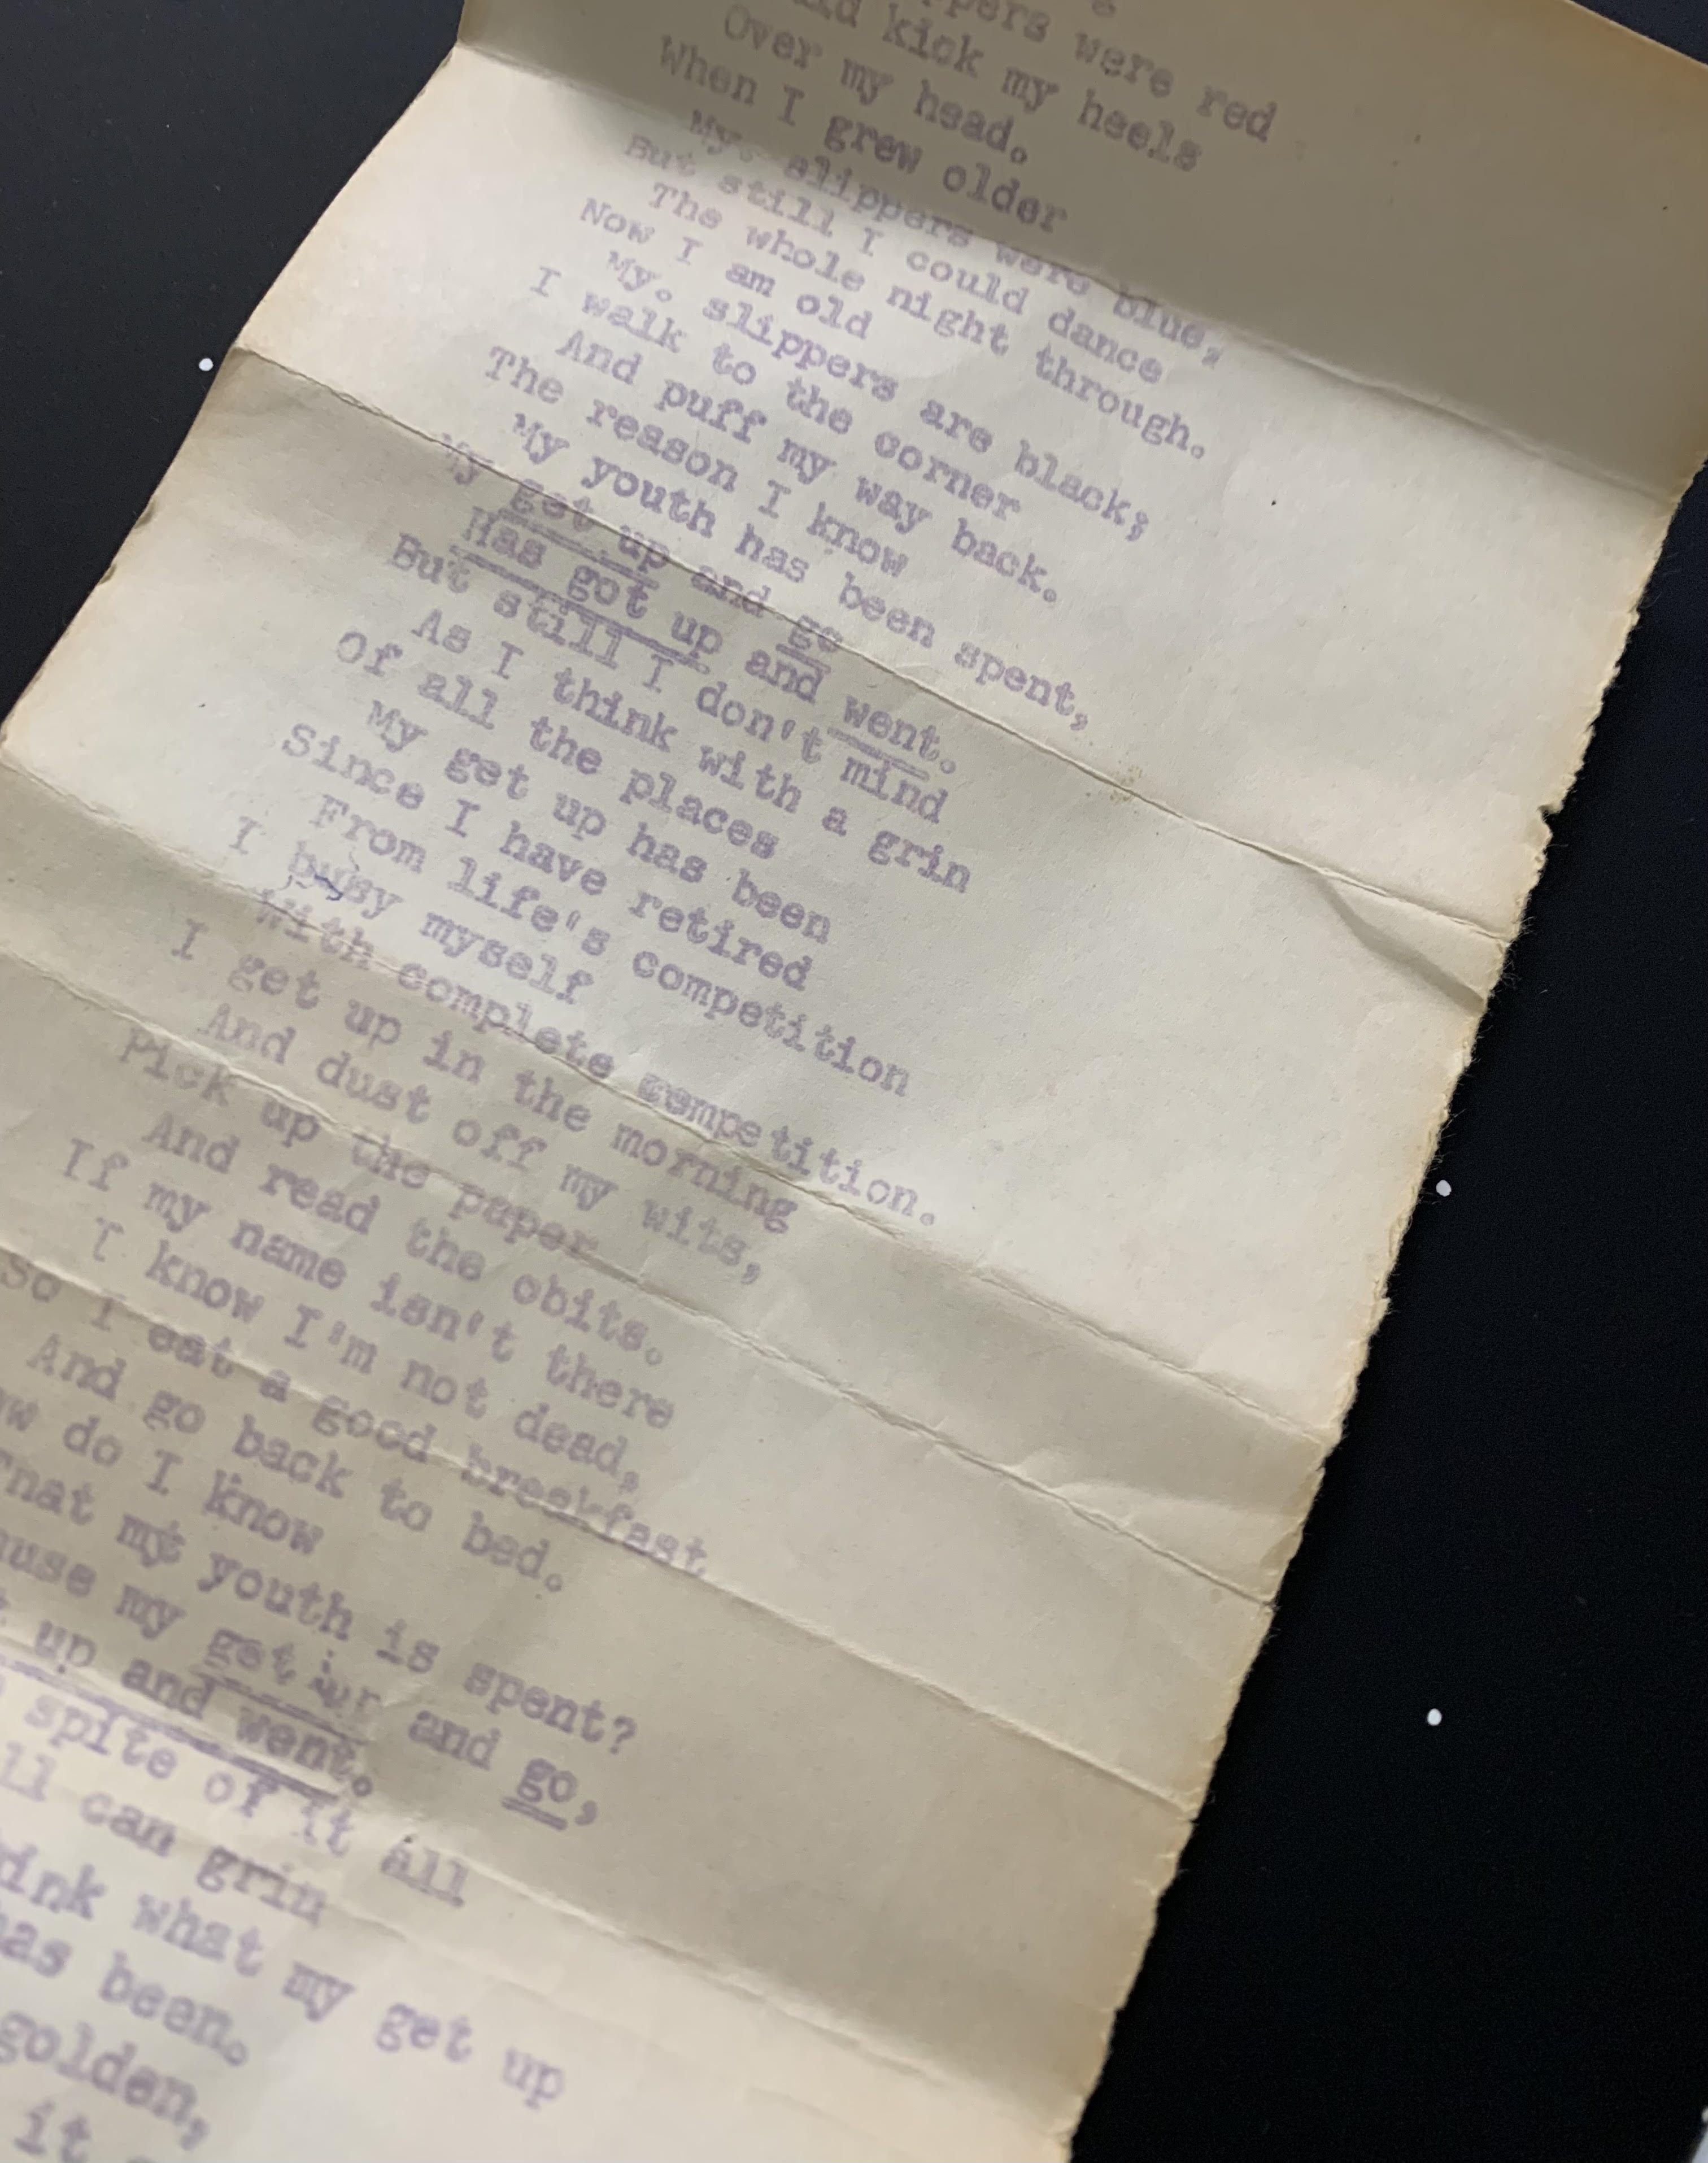 were red
kick my heels
Over my head.
When I grew older
My. slippers were blue,
But still I could dance
The whole night through.
Now I am old
My. slippers are black;
I walk to the corner
And puff my way back.
The reason I know
My youth has been spent,
My get up and go
Has got up and went.
But still I don't mind
As I think with a grin
Of all the places
My get up has been
Since I have retired
From life's competition
I busy myself
With complete competition.
I get up in the morning
And dust off my wits,
Pick up the paper
And read the obits.
If my name isn't there
I know I'm not dead,
So I eat a good breakfast
And go back to bed.
do I know
That my youth is spent?
my get up and go,
up and went.
spite of it all
can grin
what my get up
has been.
golden,
it